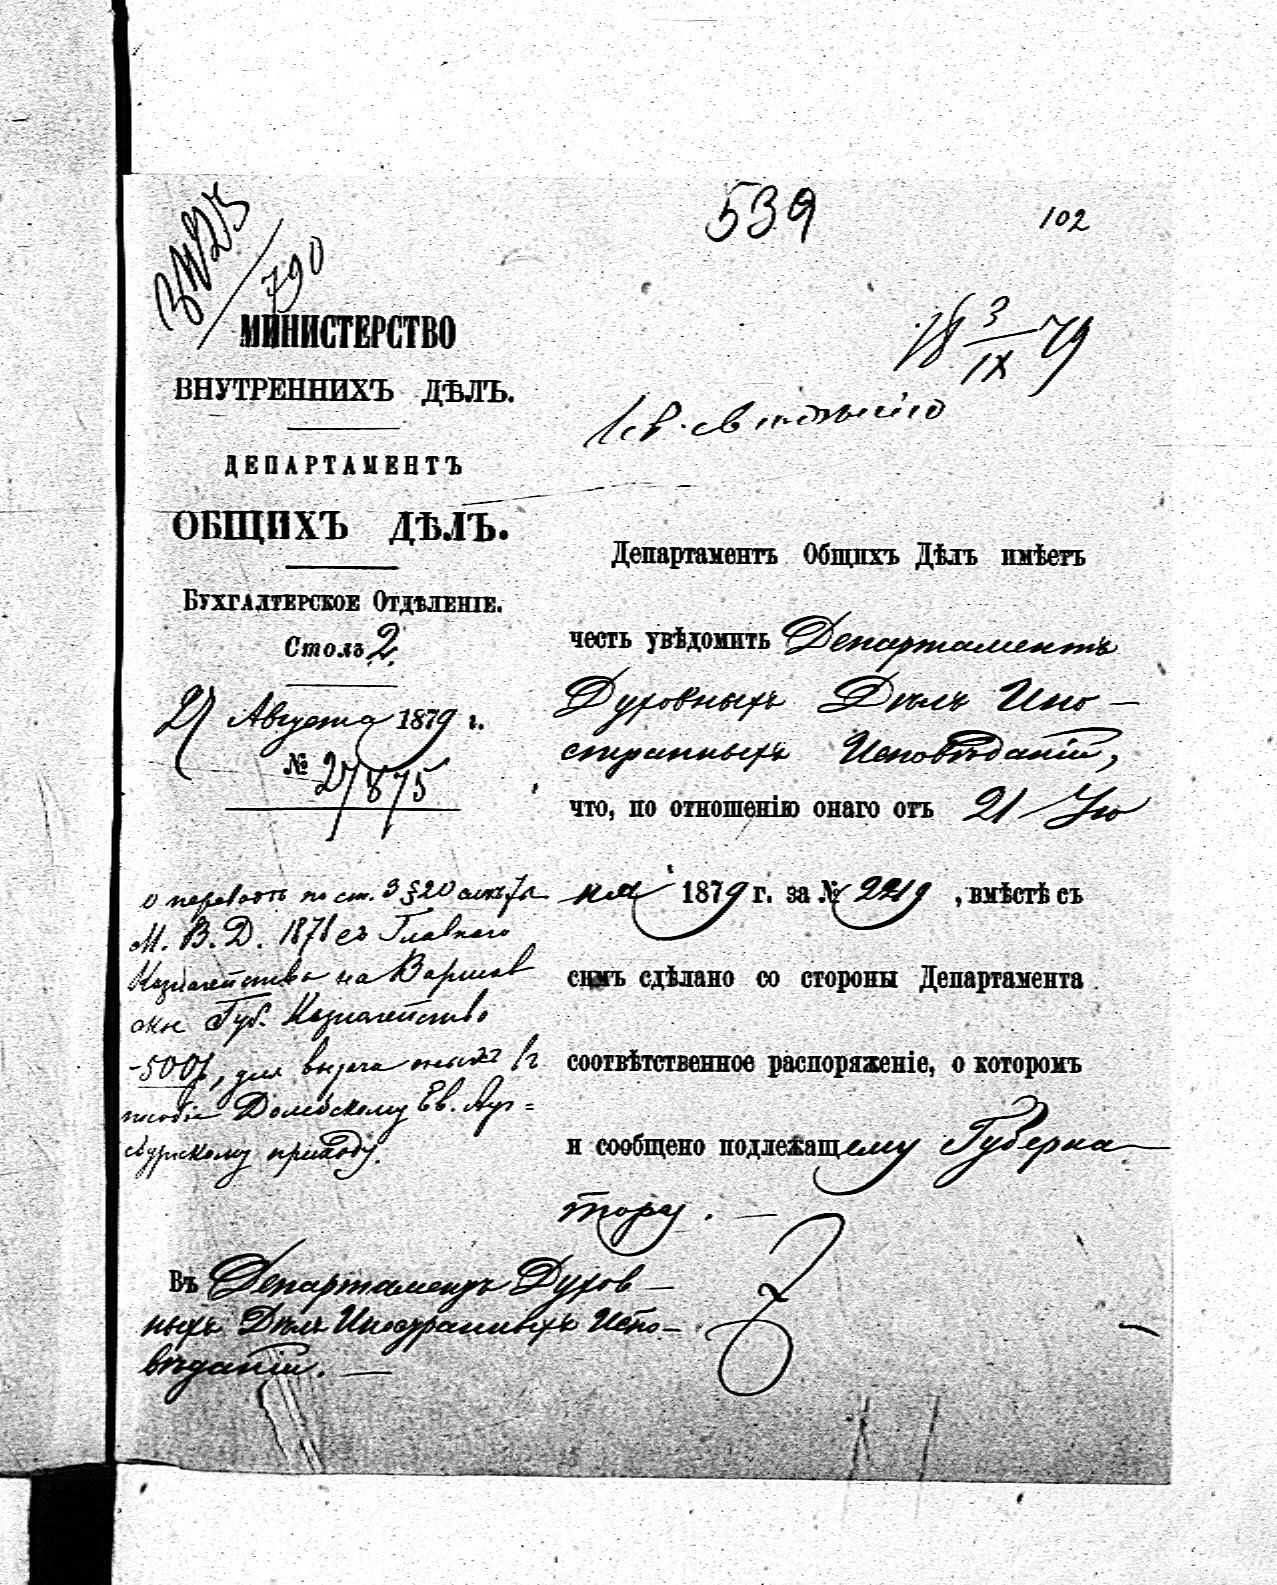 539
102
790
18 3/IX 79
Къ свѣдѣнію
МИНИСТЕРСТВО
ВНУТРЕННИХЪ ДѢЛЪ.
ДЕПАРТАМЕНТЪ
ОБЩИХЪ ДѢЛЪ.
БУХГАЛТЕРСКОЕ ОТДѢЛЕНІЕ.
Столъ 2.
Августа 1879 г.
№ 27875
о переводѣ по ст. 3 § 20 смѣты
М. В. Д. 1878 съ Главнаго
Казначейства на Варшав
ское Губ. Казначейство
500 р, для выдачи въ
пособіе Домбскому Ев. Ауг=
сбургскому приходу.
Департаментъ Общихъ Дѣлъ имѣетъ
честь увѣдомить Департаментъ
Духовныхъ Дѣлъ Ино—
странныхъ Исповѣданій,
что, по отношенію онаго отъ 21 Ію
ня 1879 г. за № 2219, вмѣстѣ съ
симъ сдѣлано со стороны Департамента
соотвѣтственное распоряженіе, о которомъ
и сообщено подлежащему Губерна—
тору. —
Въ Департаментъ Духов—
ныхъ Дѣлъ Иностранныхъ Испо—
вѣданій. —